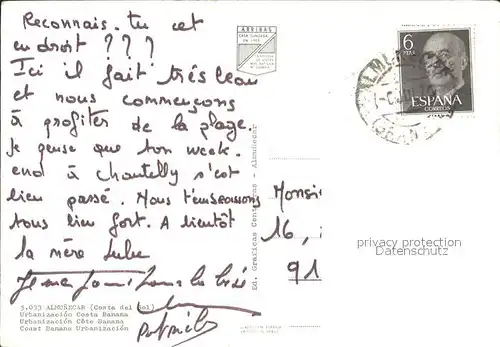 Reconnais. tu cet
endroit ? ? ?
Ici il fait très beau
et nous commençons
à profiter de la plage.
Je pense que ton week.
end à Chantilly s'est
bien passé. Nous t'embrassons
tous bien fort. A bientôt
la mère
5.033 ALMUÑECAR (Costa del Sol)
Urbanización Costa Banana
Urbanization Côte Banana
Coast Banana Urbanización
ARRIBAS
CASA FUNDADA
Ed. Graficas Contreras - Almuñecar
6
PTAS
ESPAÑA
CORREOS
Monsi
16,
91
privacy protection
Datenschutz